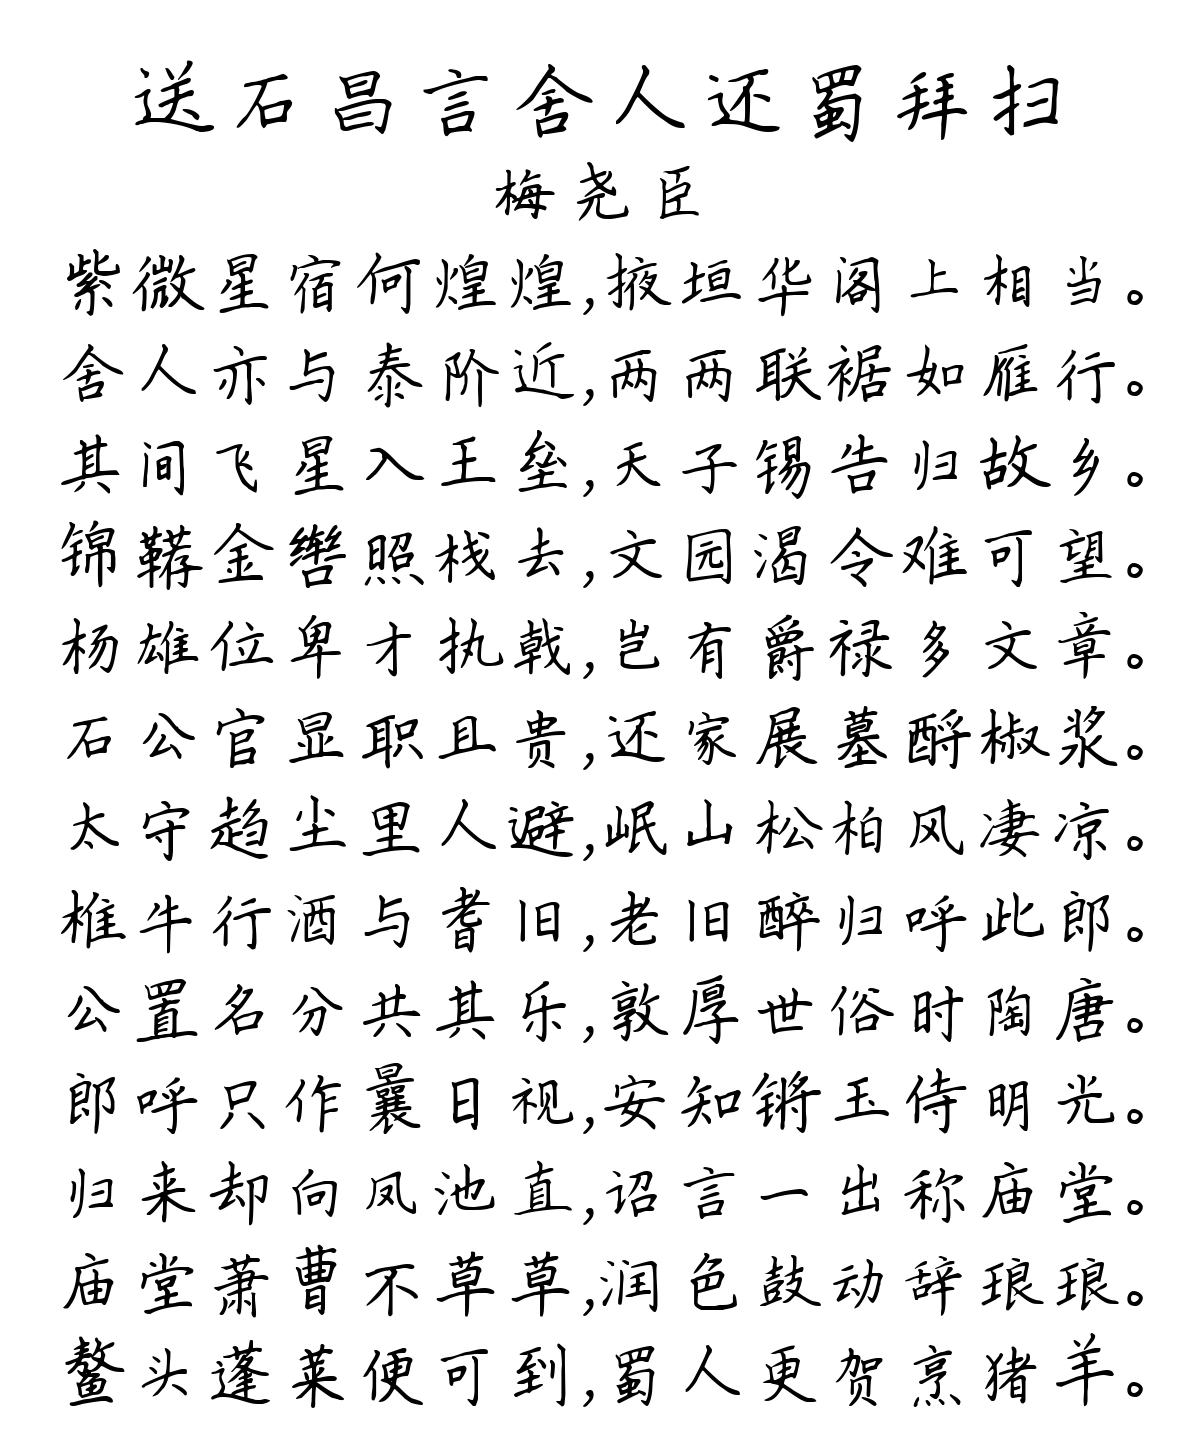 送石昌言舍人还蜀拜扫
梅尧臣
紫微星宿何煌煌,掖垣华阁上相当。
舍人亦与泰阶近,两两联裾如雁行。
其间飞星入王垒,天子锡告归故乡。
锦鞯金辔照栈去,文园渴令难可望。
杨雄位卑才执戟,岂有爵禄多文章。
石公官显职且贵,还家展墓酹椒浆。
太守趋尘里人避,岷山松柏风凄凉。
椎牛行酒与耆旧,老旧醉归呼此郎。
公置名分共其乐,敦厚世俗时陶唐。
郎呼只作曩日视,安知锵玉侍明光。
归来却向凤池直,诏言一出称庙堂。
庙堂萧曹不草草,润色鼓动辞琅琅。
鳌头蓬莱便可到,蜀人更贺烹猪羊。